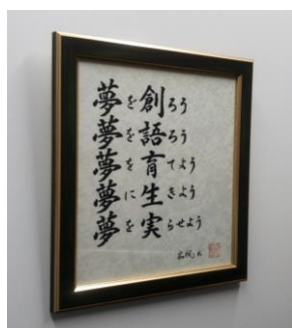 夢を創ろう
夢を語ろう
夢を育てよう
夢に生きよう
夢を実らせよう